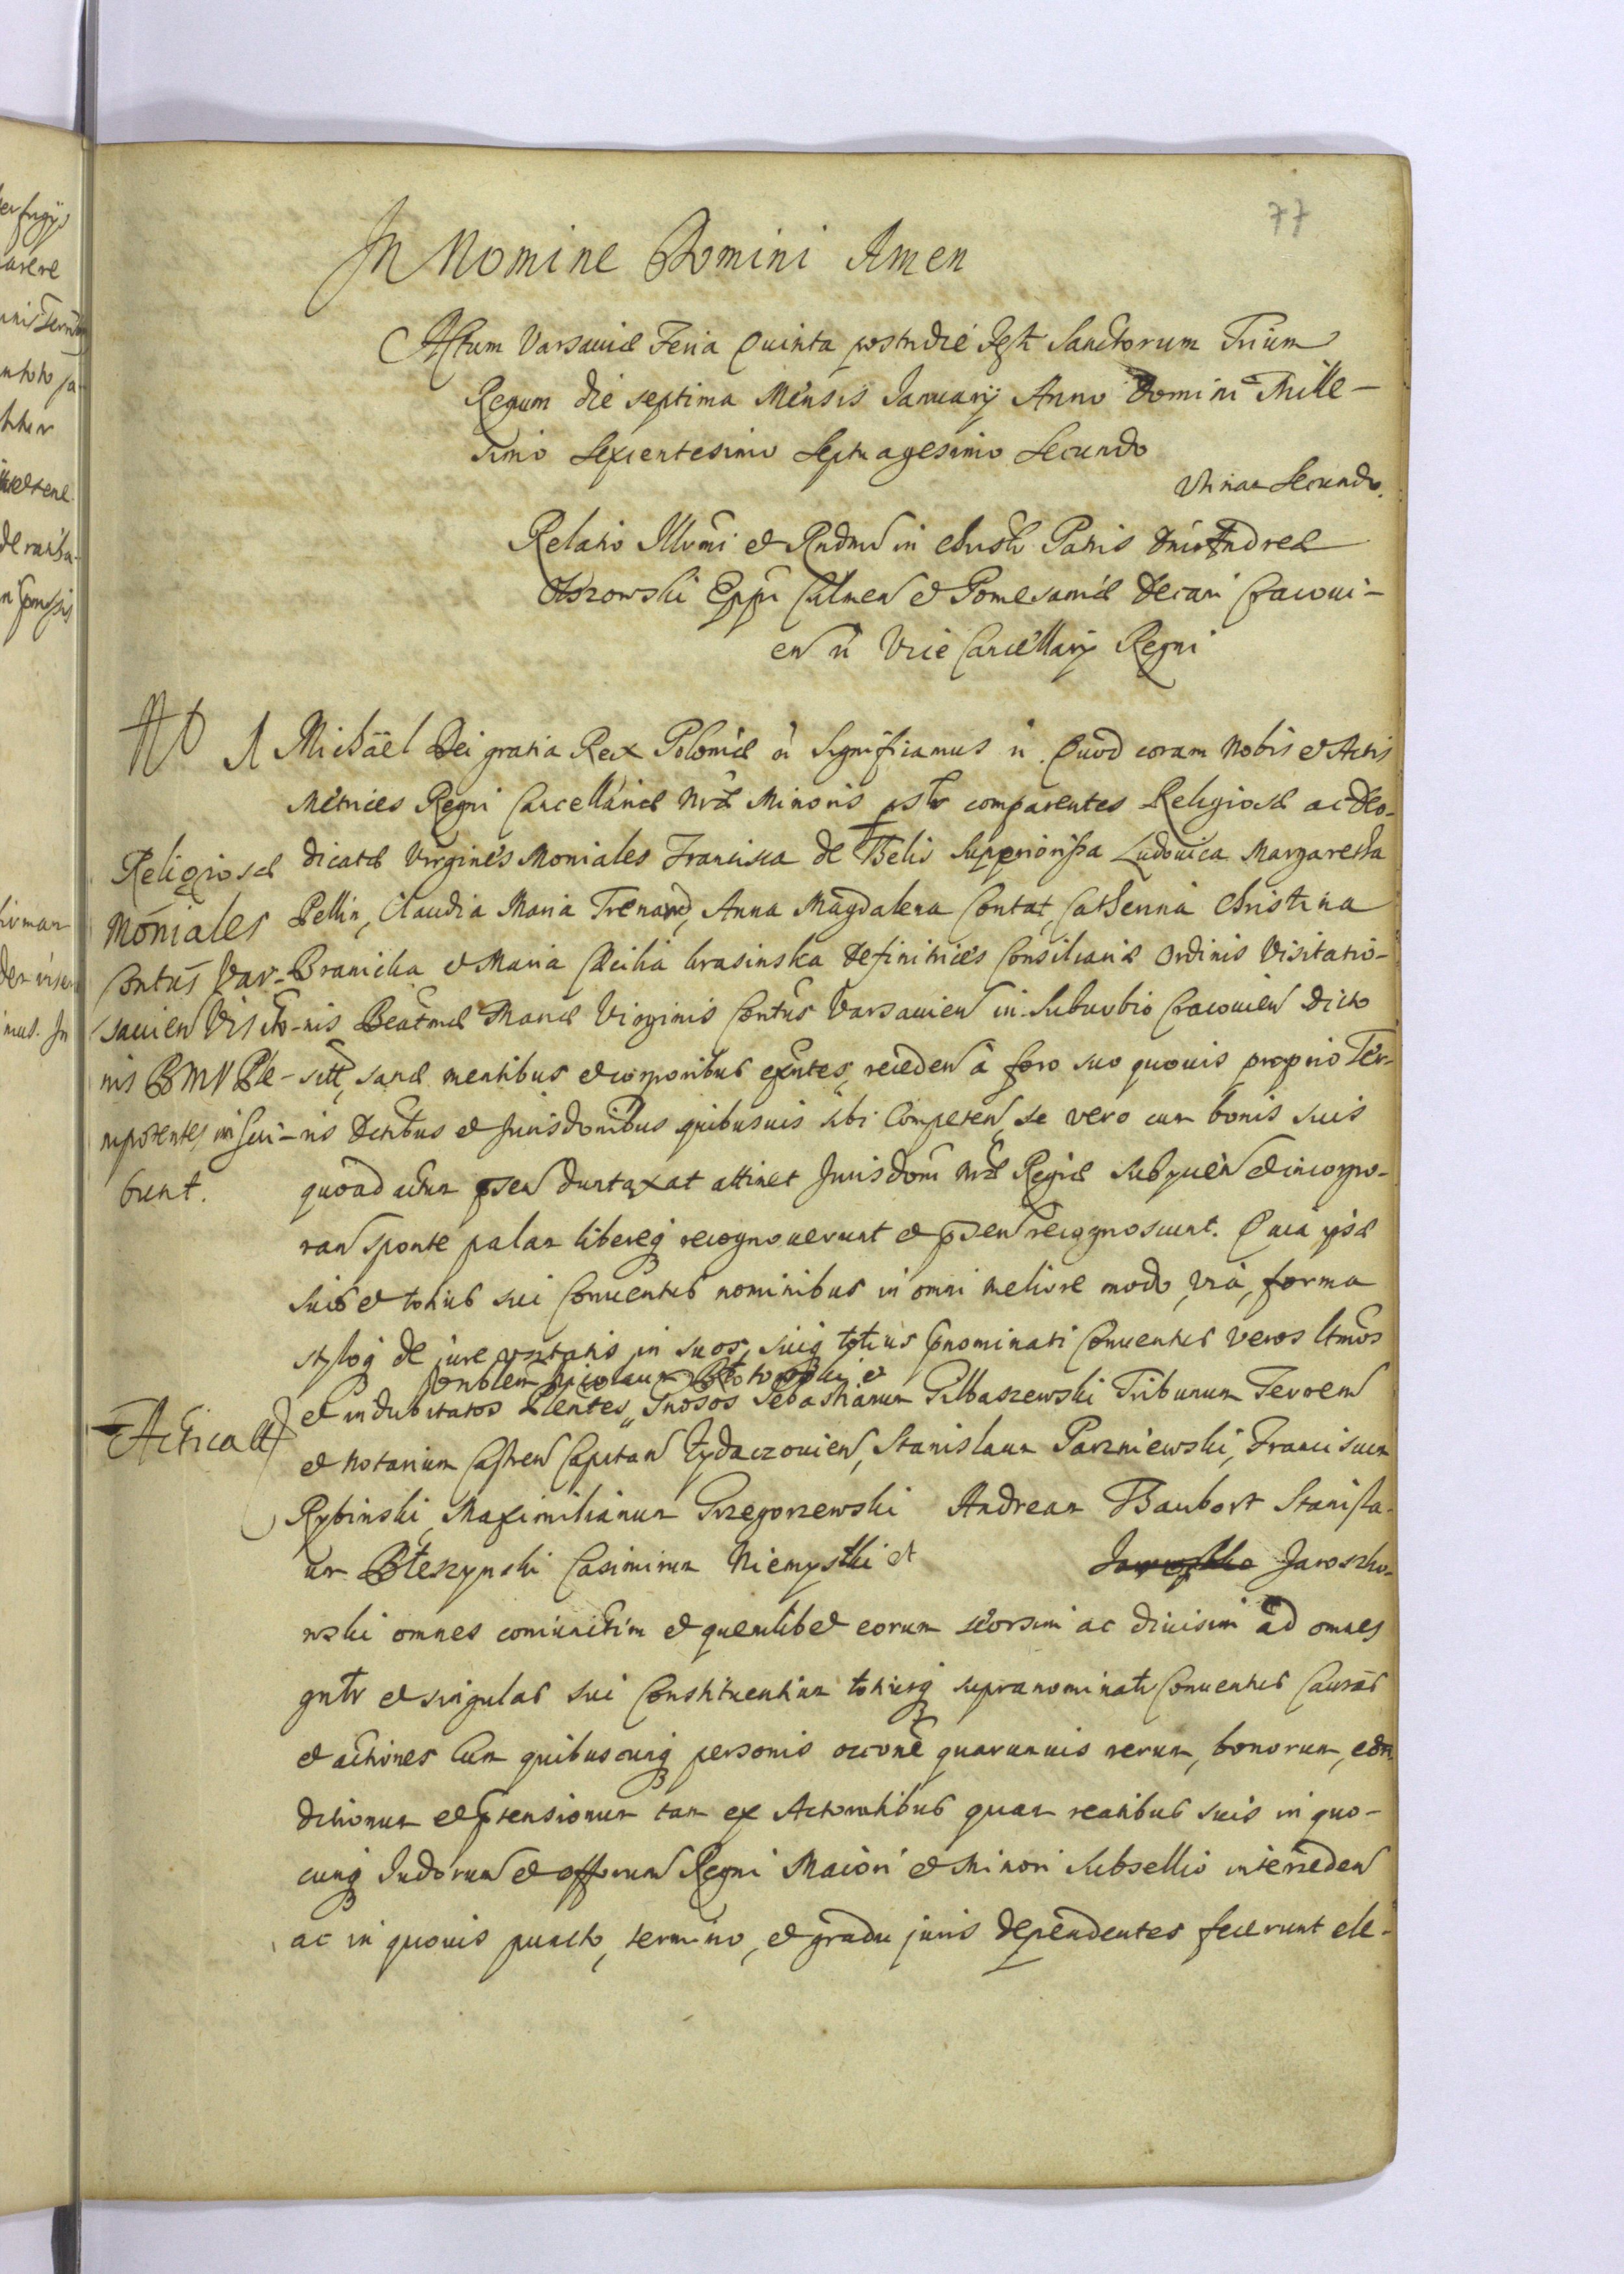 77
In Nomine Domini Amen
Actum Varsaviæ Feria Quinta postridie Festi Sanctorum Trium
Regum die septima Mensis Januarij Anno Domini Mille-
simo Sexcentesimo Septuagesimo Secundo
Secundo.
Relatio Illumi et Rndmi in Christo Patris Dni Andreæ
Olszowski Eppi Culmen et Pomesaniæ Decani Cracovi-
en Vice Cancellarij Regni
Michaël Dei gratia Rex Poloniæ Significamus Quod coram Nobis et Actis
Metrices Regni Cancellariæ nræ Minoris psltr comparentes Religiosæ ac Deo-
dicatæ Virgines Moniales Francisca de Thelis Supperiorissa Ludovica Margaretha
Pellin, Claudia Maria Trenard, Anna Magdalena Contat, Catherina Christina
Branicka et Maria Cæcilia Krasinska Definitrices Consiliariæ Ordinis Visitatio-
nis Beatmæ Mariæ Virginis Contus Varsavien in Suburbio Cracovien Dicto
sitt, sanæ mentibus et corporibus exntes, receden à foro suo quovis proprio Ter-
ris Dctibus et Jurisdonibus quibusvis sibi Competen, se vero cum bonis suis
quoad actum psen duntaxat attinet Jurisdoni nræ Regiæ Subycien et incorpo-
ran sponte palam libereq recognoverunt et psen recognoscunt. Quia ipsæ
suis et totius sui Conventus nominibus in omni meliore modo, via, forma
styloq de jure usitatis in suos, suiq totius pnominati Conventus veros ltmos
Gnblem Nicolaum et
et indubitatos Plentes, Gnosos Sebastianum Gilbaszewski Tribunum Ter
et Notarium Castren Capitan Zydaczovien, Stanislaum Parzniewski, Franciscum
Rybinski, Maximilianum Grzegorzewski Andream Baubort Stanisla-
um Błeszynski Casimirum Niemyski et Jaroszko-
wski omnes coniunctim et quemlibet eorum seorsim ac divisim ad omnes
gnltr et singulas sui Constituentium totiusq supranominati Conventus Causas
et actiones Cum quibuscunq personis occone quarumvis rerum, bonorum, con-
ditionum et ptensionum tam ex Actoratibus quam reatibus suis in quo-
cunq Judorum et offorum Regni Maiori et Minori Subsellio interceden
ac in quovis puncto, termino, et gradu juris dependentes fecerunt ele-
Religiosæ
Moniales
Contus Var-
savien Visito-
nis BMV Ple-
nipotentes inscri-
bunt.